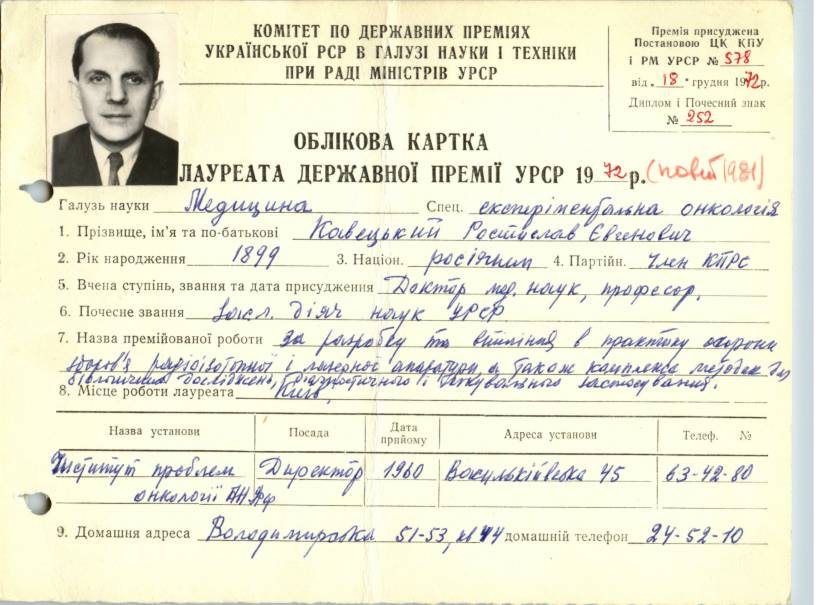 КОМІТЕТ ПО ДЕРЖАВНИХ ПРЕМІЯХ
УКРАЇНСЬКОЇ РСР В ГАЛУЗІ НАУКИ І ТЕХНІКИ
ПРИ РАДІ МІНІСТРІВ УРСР
Премія присуджена
Постановою ЦК КПУ
і РМ УРСР № 578
від „18" грудня 1972р.
Диплом і Почесний знак
№ 252
ОБЛІКОВА КАРТКА
ЛАУРЕАТА ДЕРЖАВНОЇ ПРЕМІЇ УРСР 1972 р. (1981)
Галузь науки Медицина Спец. експеріментальна онкологія
1. Прізвище, ім'я та по-батькові Кавецький Ростислав Євгенович
2. Рік народження 1899 3. Націон. росіянин 4. Партійн. член КПРС
5. Вчена ступінь, звання та дата присудження Доктор мед. наук, професор.
6. Почесне звання Засл. діяч наук УРСР
7. Назва премійованої роботи за розробку та в практику охорони
здоров'я радіоізотопної і лазерної апаратури, а також комплекса методик для
біологічних досліджень, діагностичного і лікувального застосування.
8. Місце роботи лауреата Київ,
Назва установи Посада Дата прийому Адреса установи Телеф. №
Інститут проблем Директор 1960 Васильківська 45 63-42-80
онкології АН
9. Домашня адреса Володимирська 51-53, кв 44 домашній телефон 24-52-10